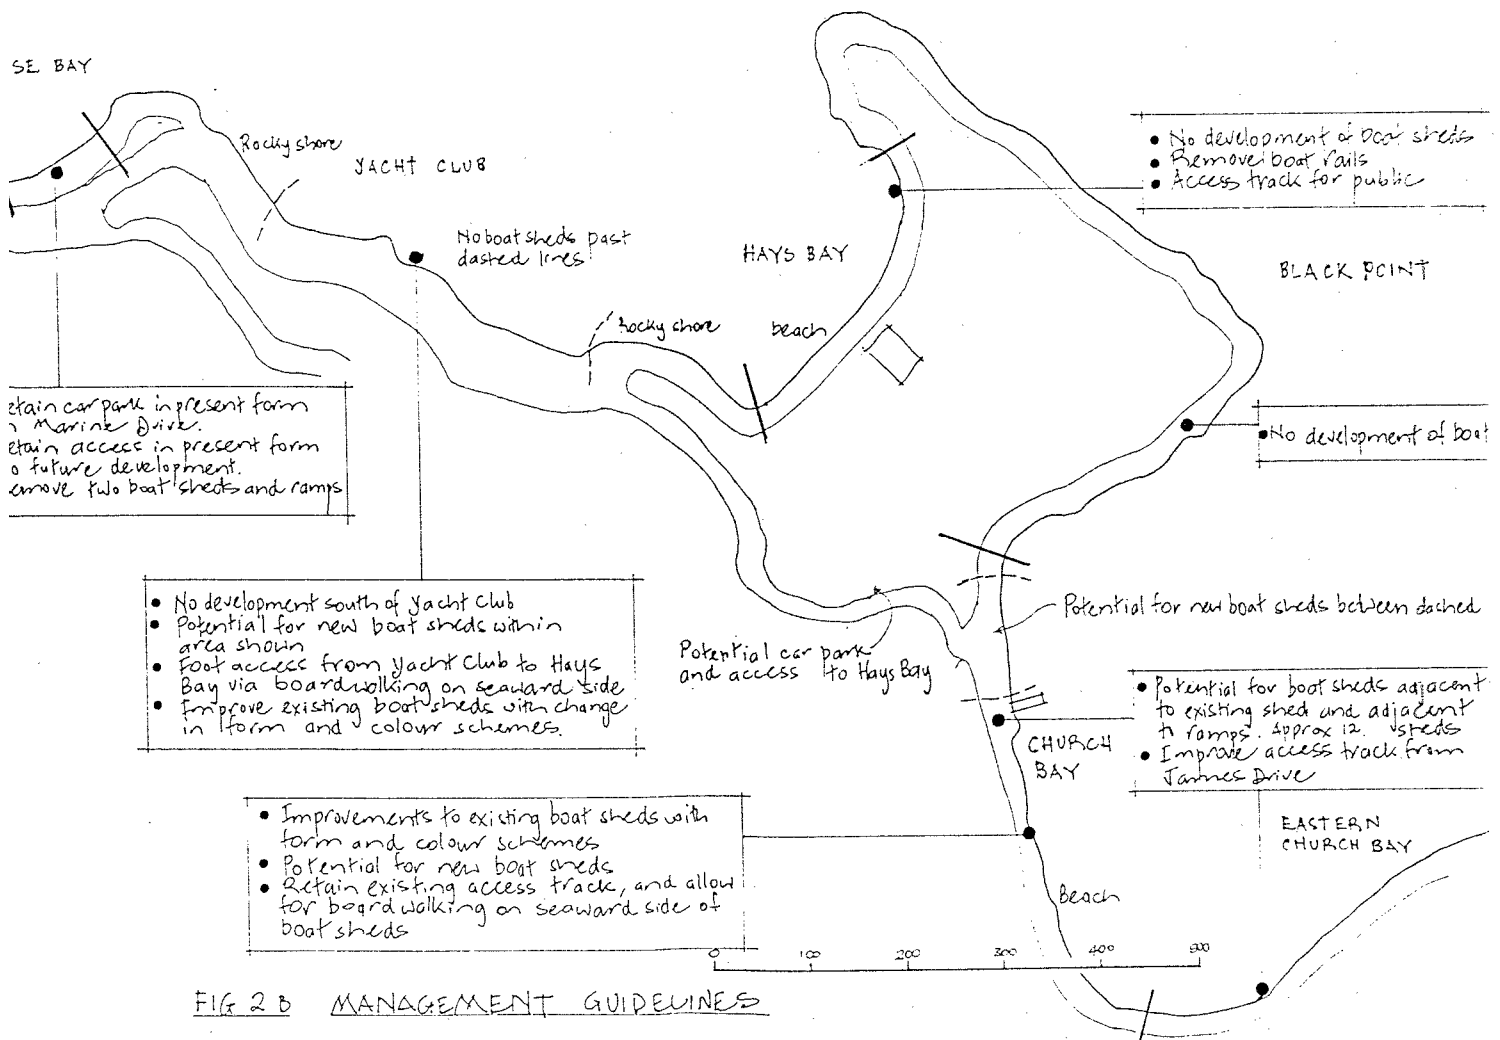 SE BAY
Rocky shore
YACHT CLUB
No boat sheds past
dashed lines
Rocky shore
HAYS BAY
beach
• No development of boat sheds
• Remove boat rails
• Access track for public
BLACK POINT
•No development of boat
etain car park in present form
n Marine Drive.
etain access in present form
o future development.
emove two boat sheds and ramps
• No development south of Yacht Club
• Potential for new boat sheds within
area shown
• Foot access from Yacht Club to Hays
Bay via boardwalking on seaward side
• Improve existing boat sheds with change
in form and colour schemes.
Potential car park
and access to Hays Bay
Potential for new boat sheds between dashed
• Potential for boat sheds adjacent
to existing shed and adjacent
to ramps. Approx 12. sheds
• Improve access track from
James Drive
CHURCH
BAY
• Improvements to existing boat sheds with
form and colour schemes
• Potential for new boat sheds
• Retain existing access track, and allow
for boardwalking on seaward side of
boat sheds
EASTERN
CHURCH BAY
Beach
0 100 200 300 400 500
FIG 2B MANAGEMENT GUIDELINES